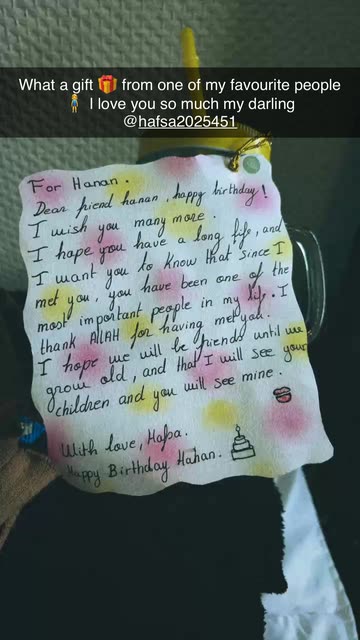 What a gift 🎁 from one of my favourite people
🧍‍♀️ I love you so much my darling
@hafsa2025451
For Hanan.
Dear friend hanan, happy birthday!
I wish you many more.
I hope you have a long life, and
I want you to know that since I
met you, you have been one of the
most important people in my life. I
thank ALLAH for having met you.
I hope we will be friends until we
grow old, and that I will see your
children and you will see mine.
With love, Hafsa.
Happy Birthday Hanan.